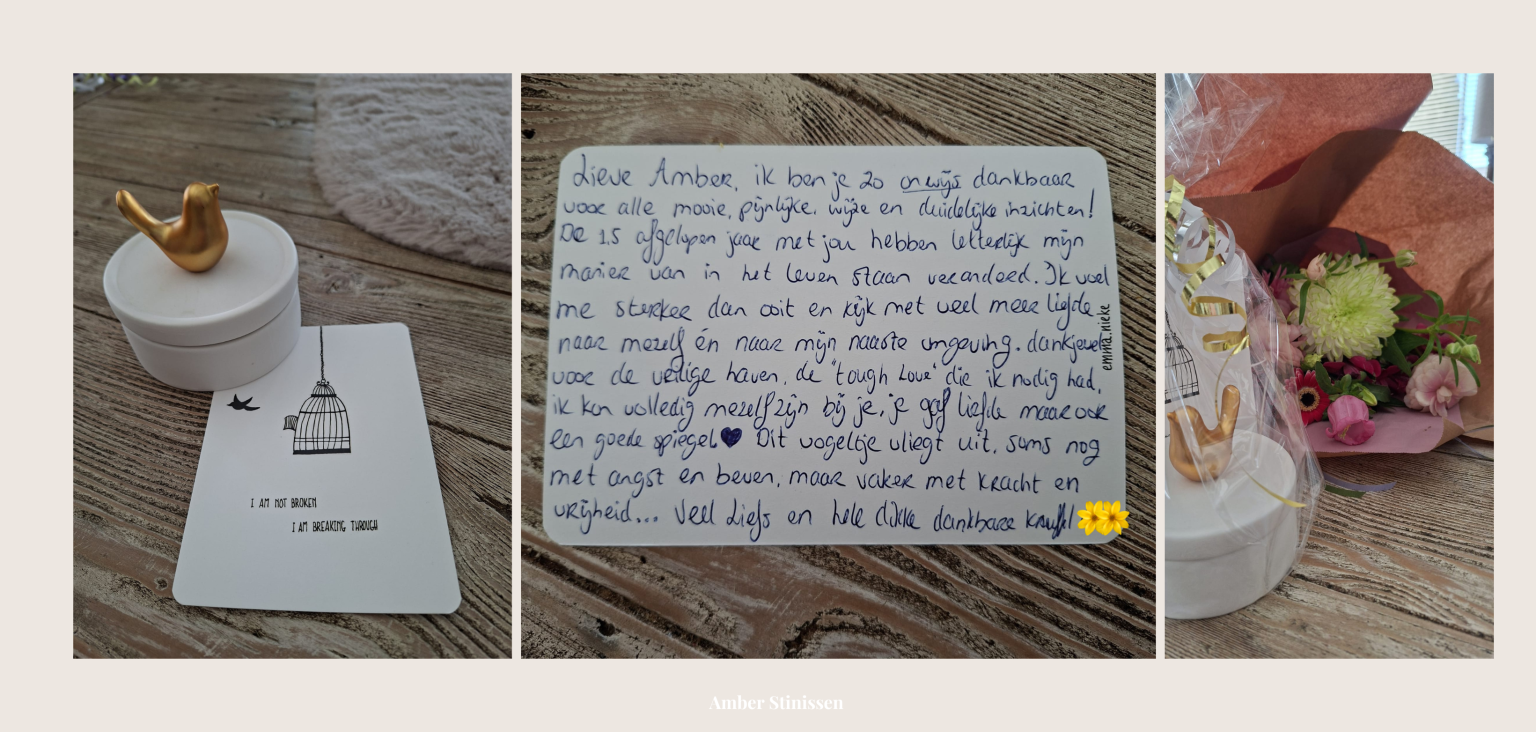 I AM NOT BROKEN
I AM BREAKING THROUGH
Lieve Amber, ik ben je zo onwijs dankbaar
voor alle mooie, pijnlijke, wijze en duidelijke inzichten!
De 1.5 afgelopen jaar met jou hebben letterlijk mijn
manier van in het leven staan veranderd. Ik voel
me sterker dan ooit en kijk met veel meer liefde
naar mezelf én naar mijn naaste omgeving. dankjewel
voor de veilige haven, de 'tough Love' die ik nodig had,
ik kon volledig mezelf zijn bij je, je gaf liefde maar ook
een goede spiegel Dit vogeltje vliegt uit, soms nog
met angst en beven, maar vaker met kracht en
vrijheid... Veel Liefs en hele dikke dankbare knuffel
emma.nieke
Amber Stinissen